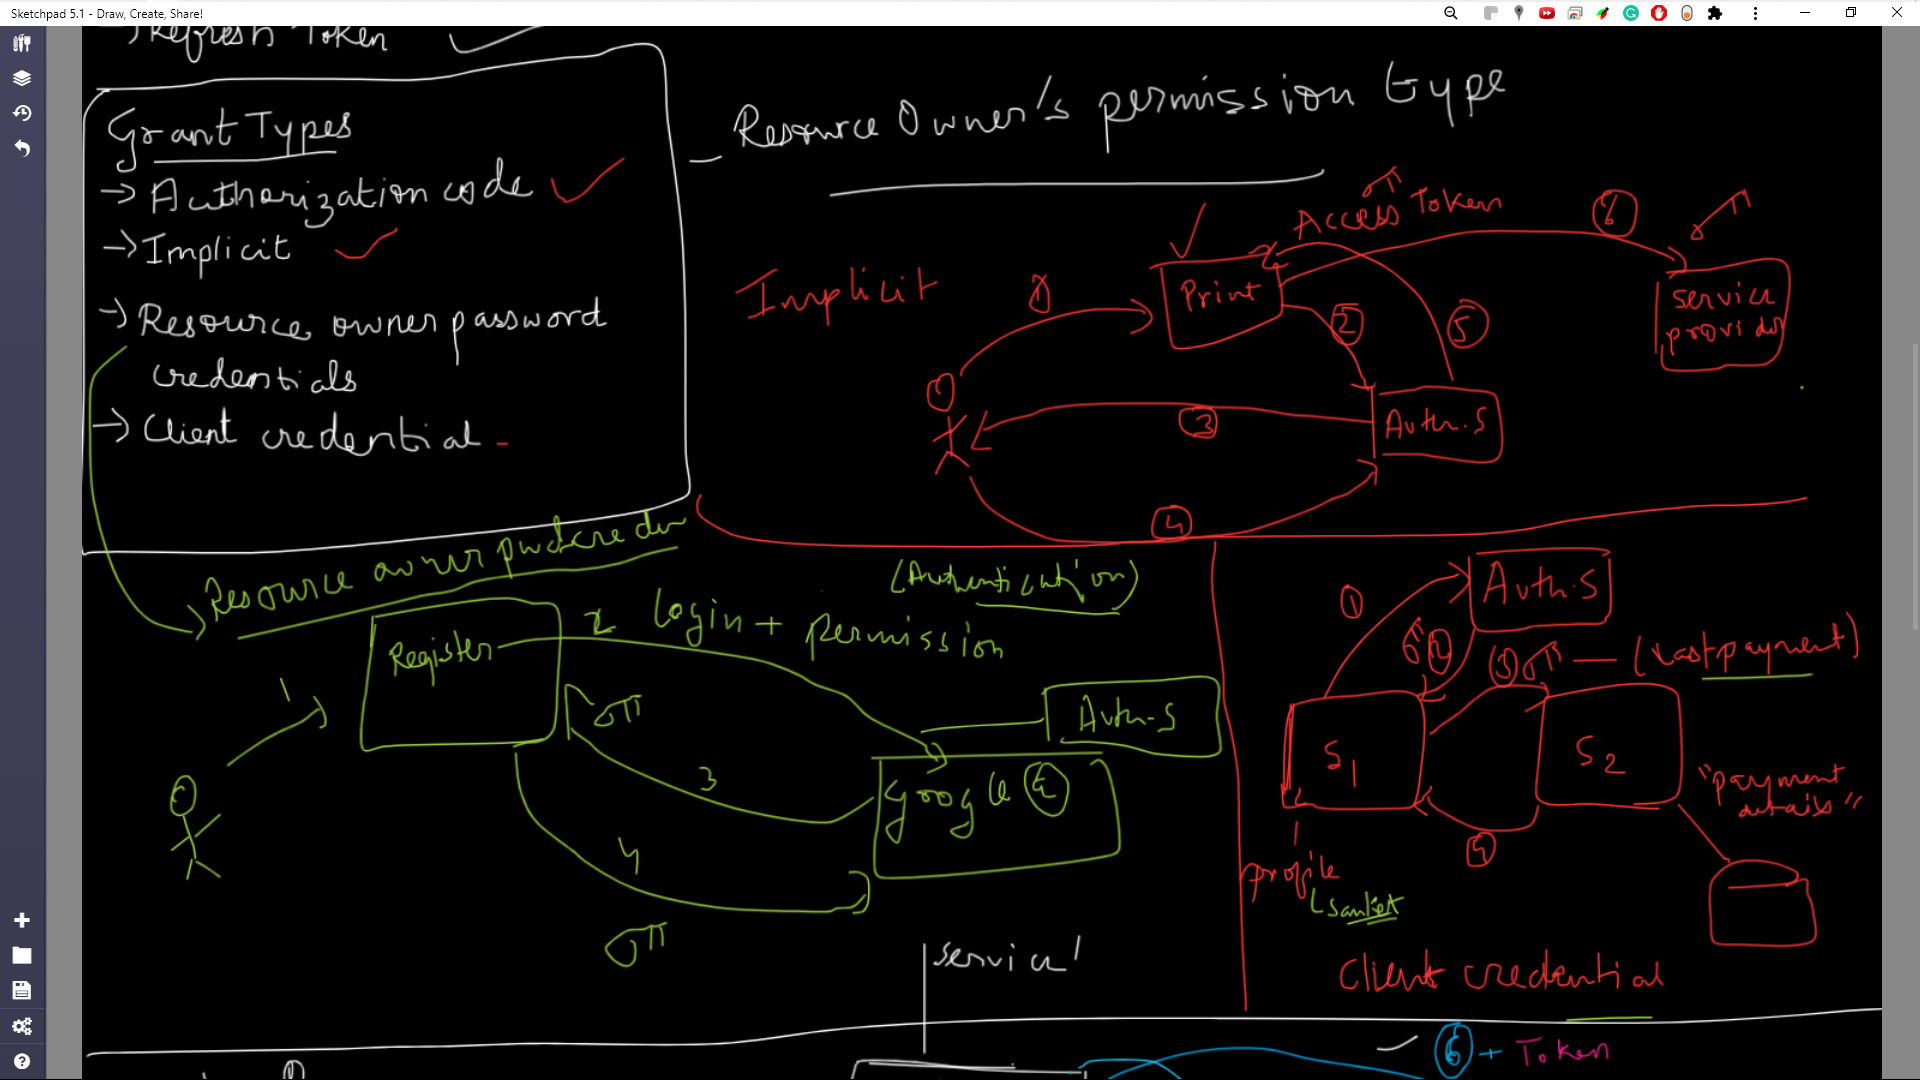 Sketchpad 5.1 - Draw, Create, Share!
Refresh Token
Grant Types
→ Authorization code
→ Implicit
→ Resource owner password
credentials
→ Client credential -
- Resource Owner's permission type
Implicit
1
Print
Access Token
2
5
6
service
provider
3
Auth.S
4
Resource owner pwd creden
(Authentication)
2 login + permission
Register
1
3
4
Auth-S
Google
1
Auth.S
2
3
(Last payment)
S1
S2
"payment
details"
4
profile
sanket
Client credential
service
6 + Token